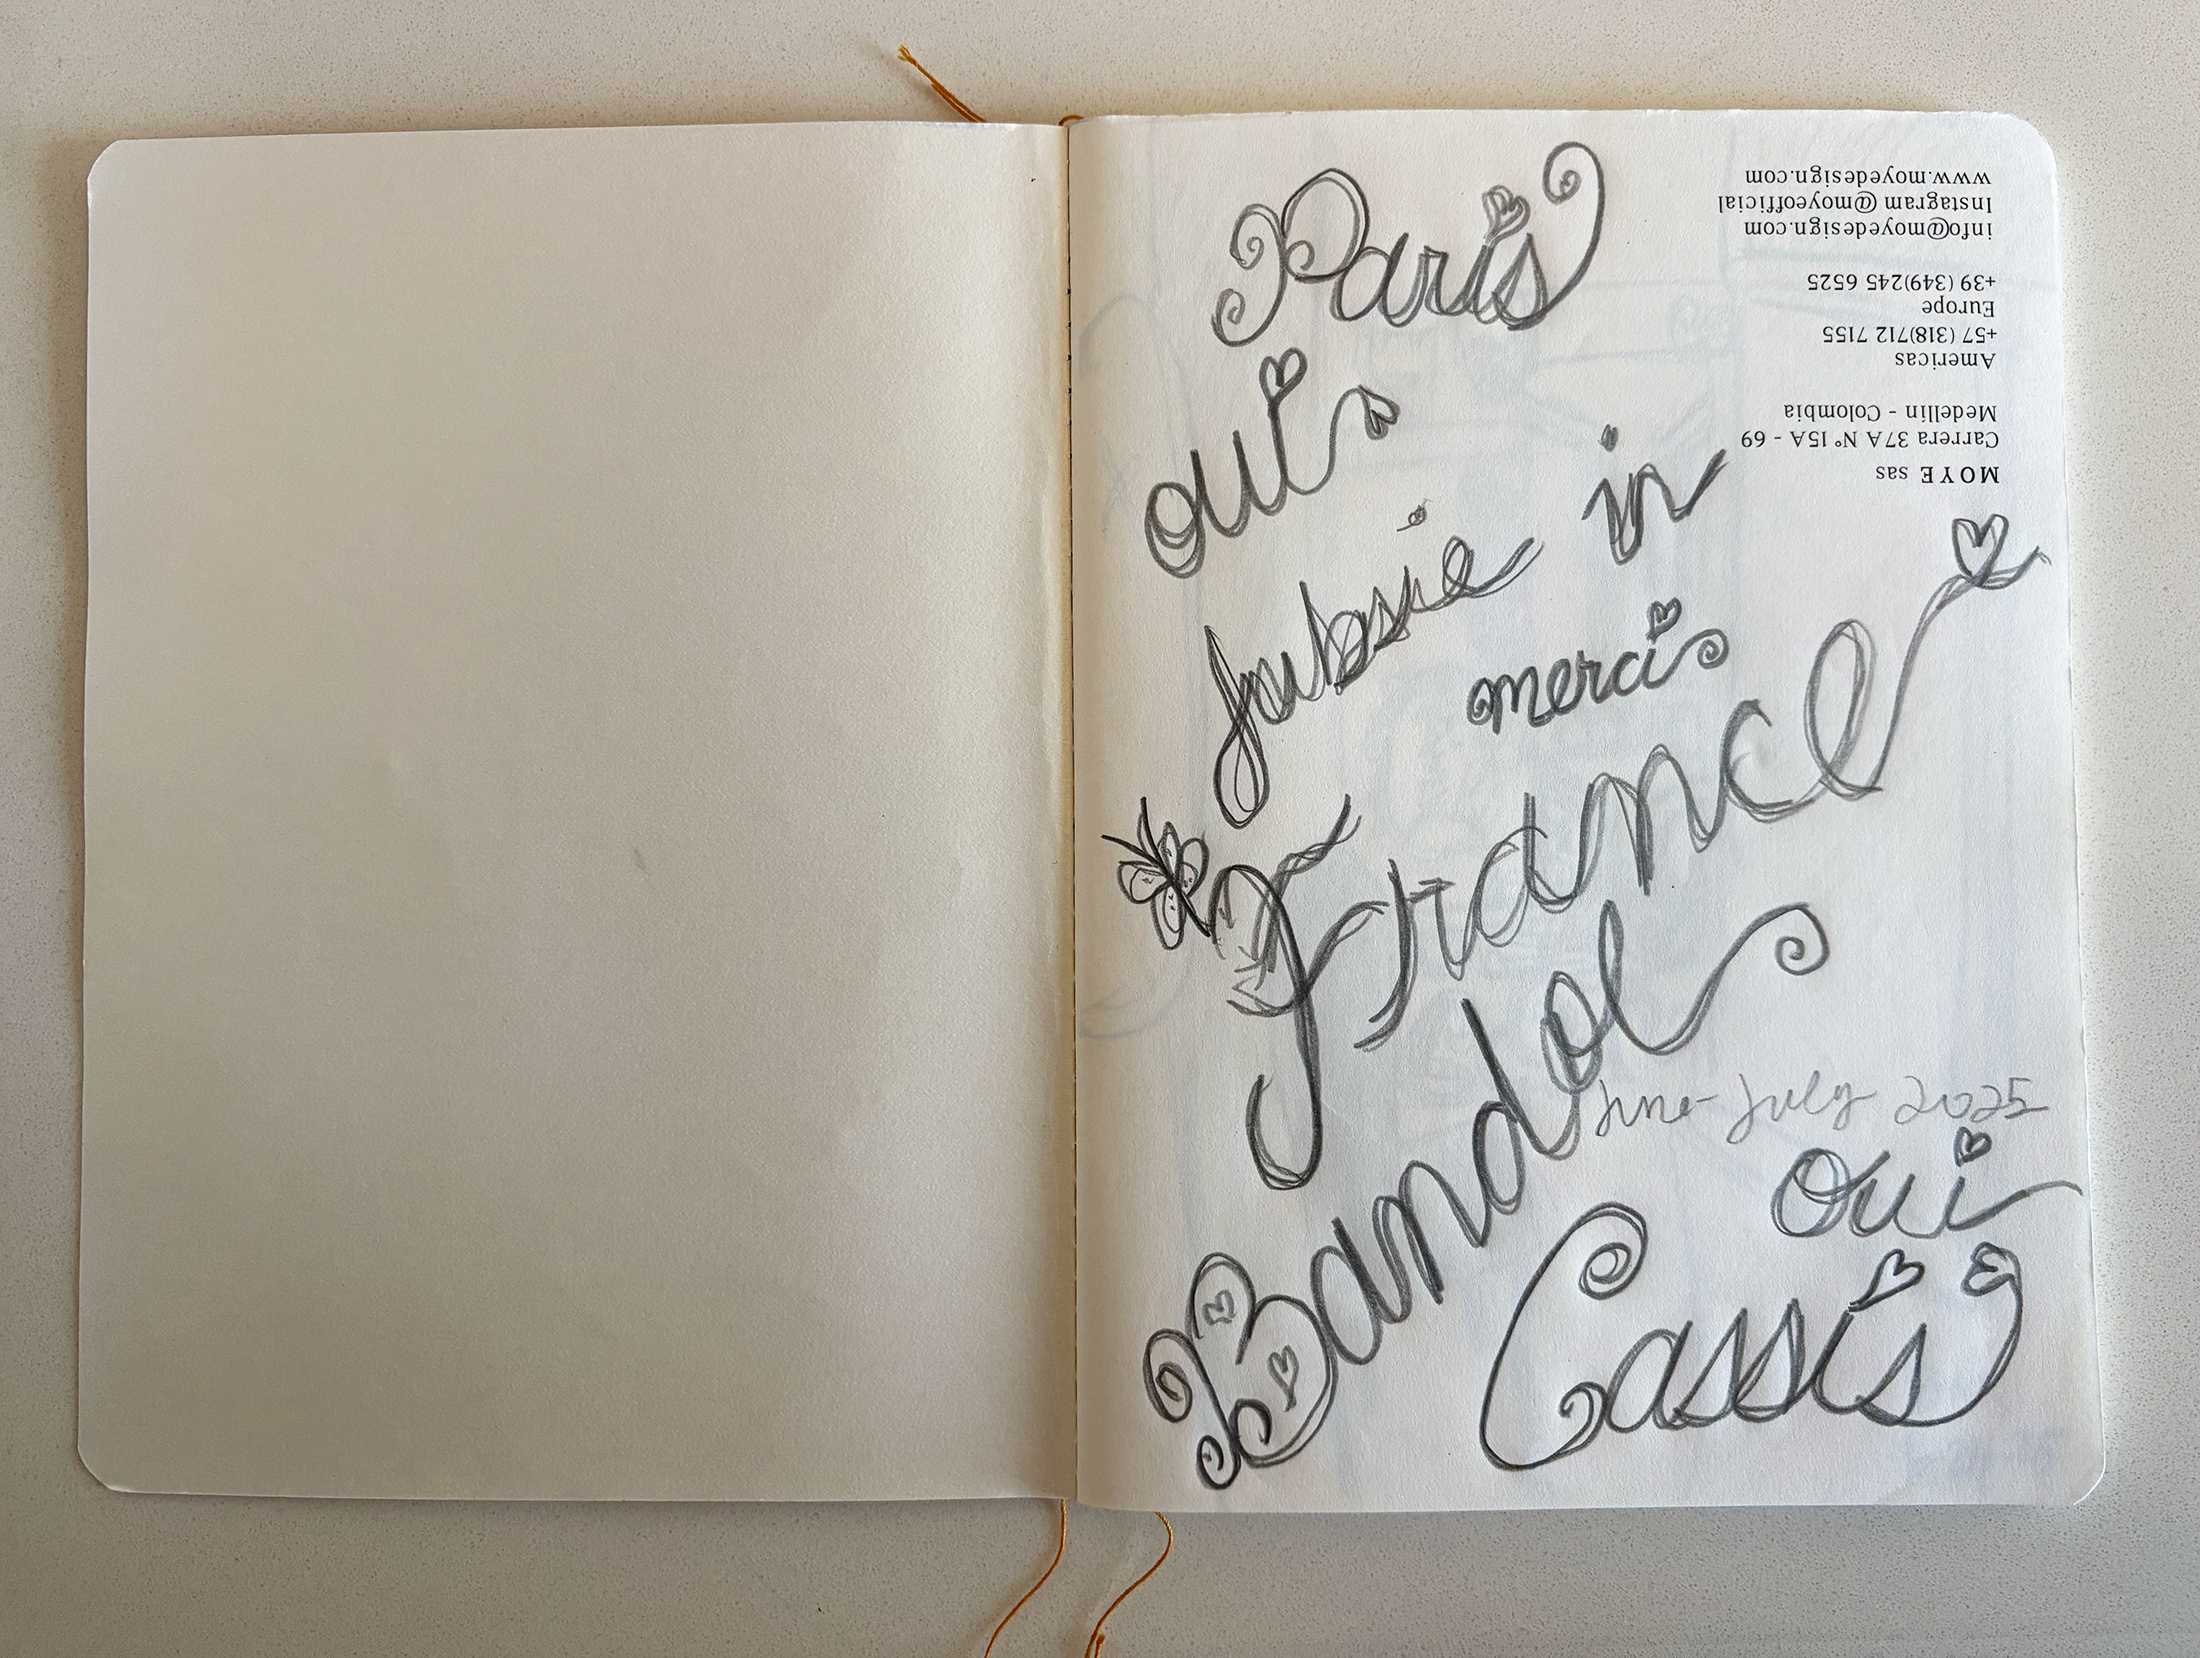 Paris
oui
in
merci
France
Bandol
June-July 2025
oui
Cassis
MOYE sas
Carrera 37A N° 15A - 69
Medellin - Colombia
Americas
+57 (318)712 7155
Europe
+39 (349)245 6525
info@moyedesign.com
Instagram @moyeofficial
www.moyedesign.com